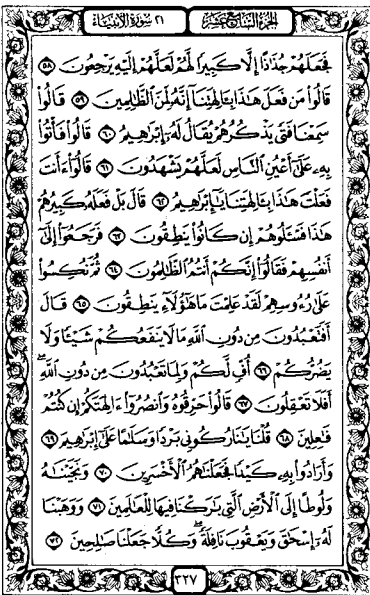 الجزء السابع عشر ٢١ سورة الأنبياء
فَجَعَلَهُمْ جُذَٰذًا إِلَّا كَبِيرًا لَّهُمْ لَعَلَّهُمْ إِلَيْهِ يَرْجِعُونَ ٥٨
قَالُوا۟ مَن فَعَلَ هَٰذَا بِـَٔالِهَتِنَآ إِنَّهُۥ لَمِنَ ٱلظَّٰلِمِينَ ٥٩ قَالُوا۟
سَمِعْنَا فَتًى يَذْكُرُهُمْ يُقَالُ لَهُۥٓ إِبْرَٰهِيمُ ٦٠ قَالُوا۟ فَأْتُوا۟
بِهِۦ عَلَىٰٓ أَعْيُنِ ٱلنَّاسِ لَعَلَّهُمْ يَشْهَدُونَ ٦١ قَالُوٓا۟ ءَأَنتَ
فَعَلْتَ هَٰذَا بِـَٔالِهَتِنَا يَٰٓإِبْرَٰهِيمُ ٦٢ قَالَ بَلْ فَعَلَهُۥ كَبِيرُهُمْ
هَٰذَا فَسْـَٔلُوهُمْ إِن كَانُوا۟ يَنطِقُونَ ٦٣ فَرَجَعُوٓا۟ إِلَىٰٓ
أَنفُسِهِمْ فَقَالُوٓا۟ إِنَّكُمْ أَنتُمُ ٱلظَّٰلِمُونَ ٦٤ ثُمَّ نُكِسُوا۟
عَلَىٰ رُءُوسِهِمْ لَقَدْ عَلِمْتَ مَا هَٰٓؤُلَآءِ يَنطِقُونَ ٦٥ قَالَ
أَفَتَعْبُدُونَ مِن دُونِ ٱللَّهِ مَا لَا يَنفَعُكُمْ شَيْـًٔا وَلَا
يَضُرُّكُمْ ٦٦ أُفٍّ لَّكُمْ وَلِمَا تَعْبُدُونَ مِن دُونِ ٱللَّهِۖ
أَفَلَا تَعْقِلُونَ ٦٧ قَالُوا۟ حَرِّقُوهُ وَٱنصُرُوٓا۟ ءَالِهَتَكُمْ إِن كُنتُمْ
فَٰعِلِينَ ٦٨ قُلْنَا يَٰنَارُ كُونِى بَرْدًا وَسَلَٰمًا عَلَىٰٓ إِبْرَٰهِيمَ ٦٩
وَأَرَادُوا۟ بِهِۦ كَيْدًا فَجَعَلْنَٰهُمُ ٱلْأَخْسَرِينَ ٧٠ وَنَجَّيْنَٰهُ
وَلُوطًا إِلَى ٱلْأَرْضِ ٱلَّتِى بَٰرَكْنَا فِيهَا لِلْعَٰلَمِينَ ٧١ وَوَهَبْنَا
لَهُۥٓ إِسْحَٰقَ وَيَعْقُوبَ نَافِلَةًۖ وَكُلًّا جَعَلْنَا صَٰلِحِينَ ٧٢
٣٢٧